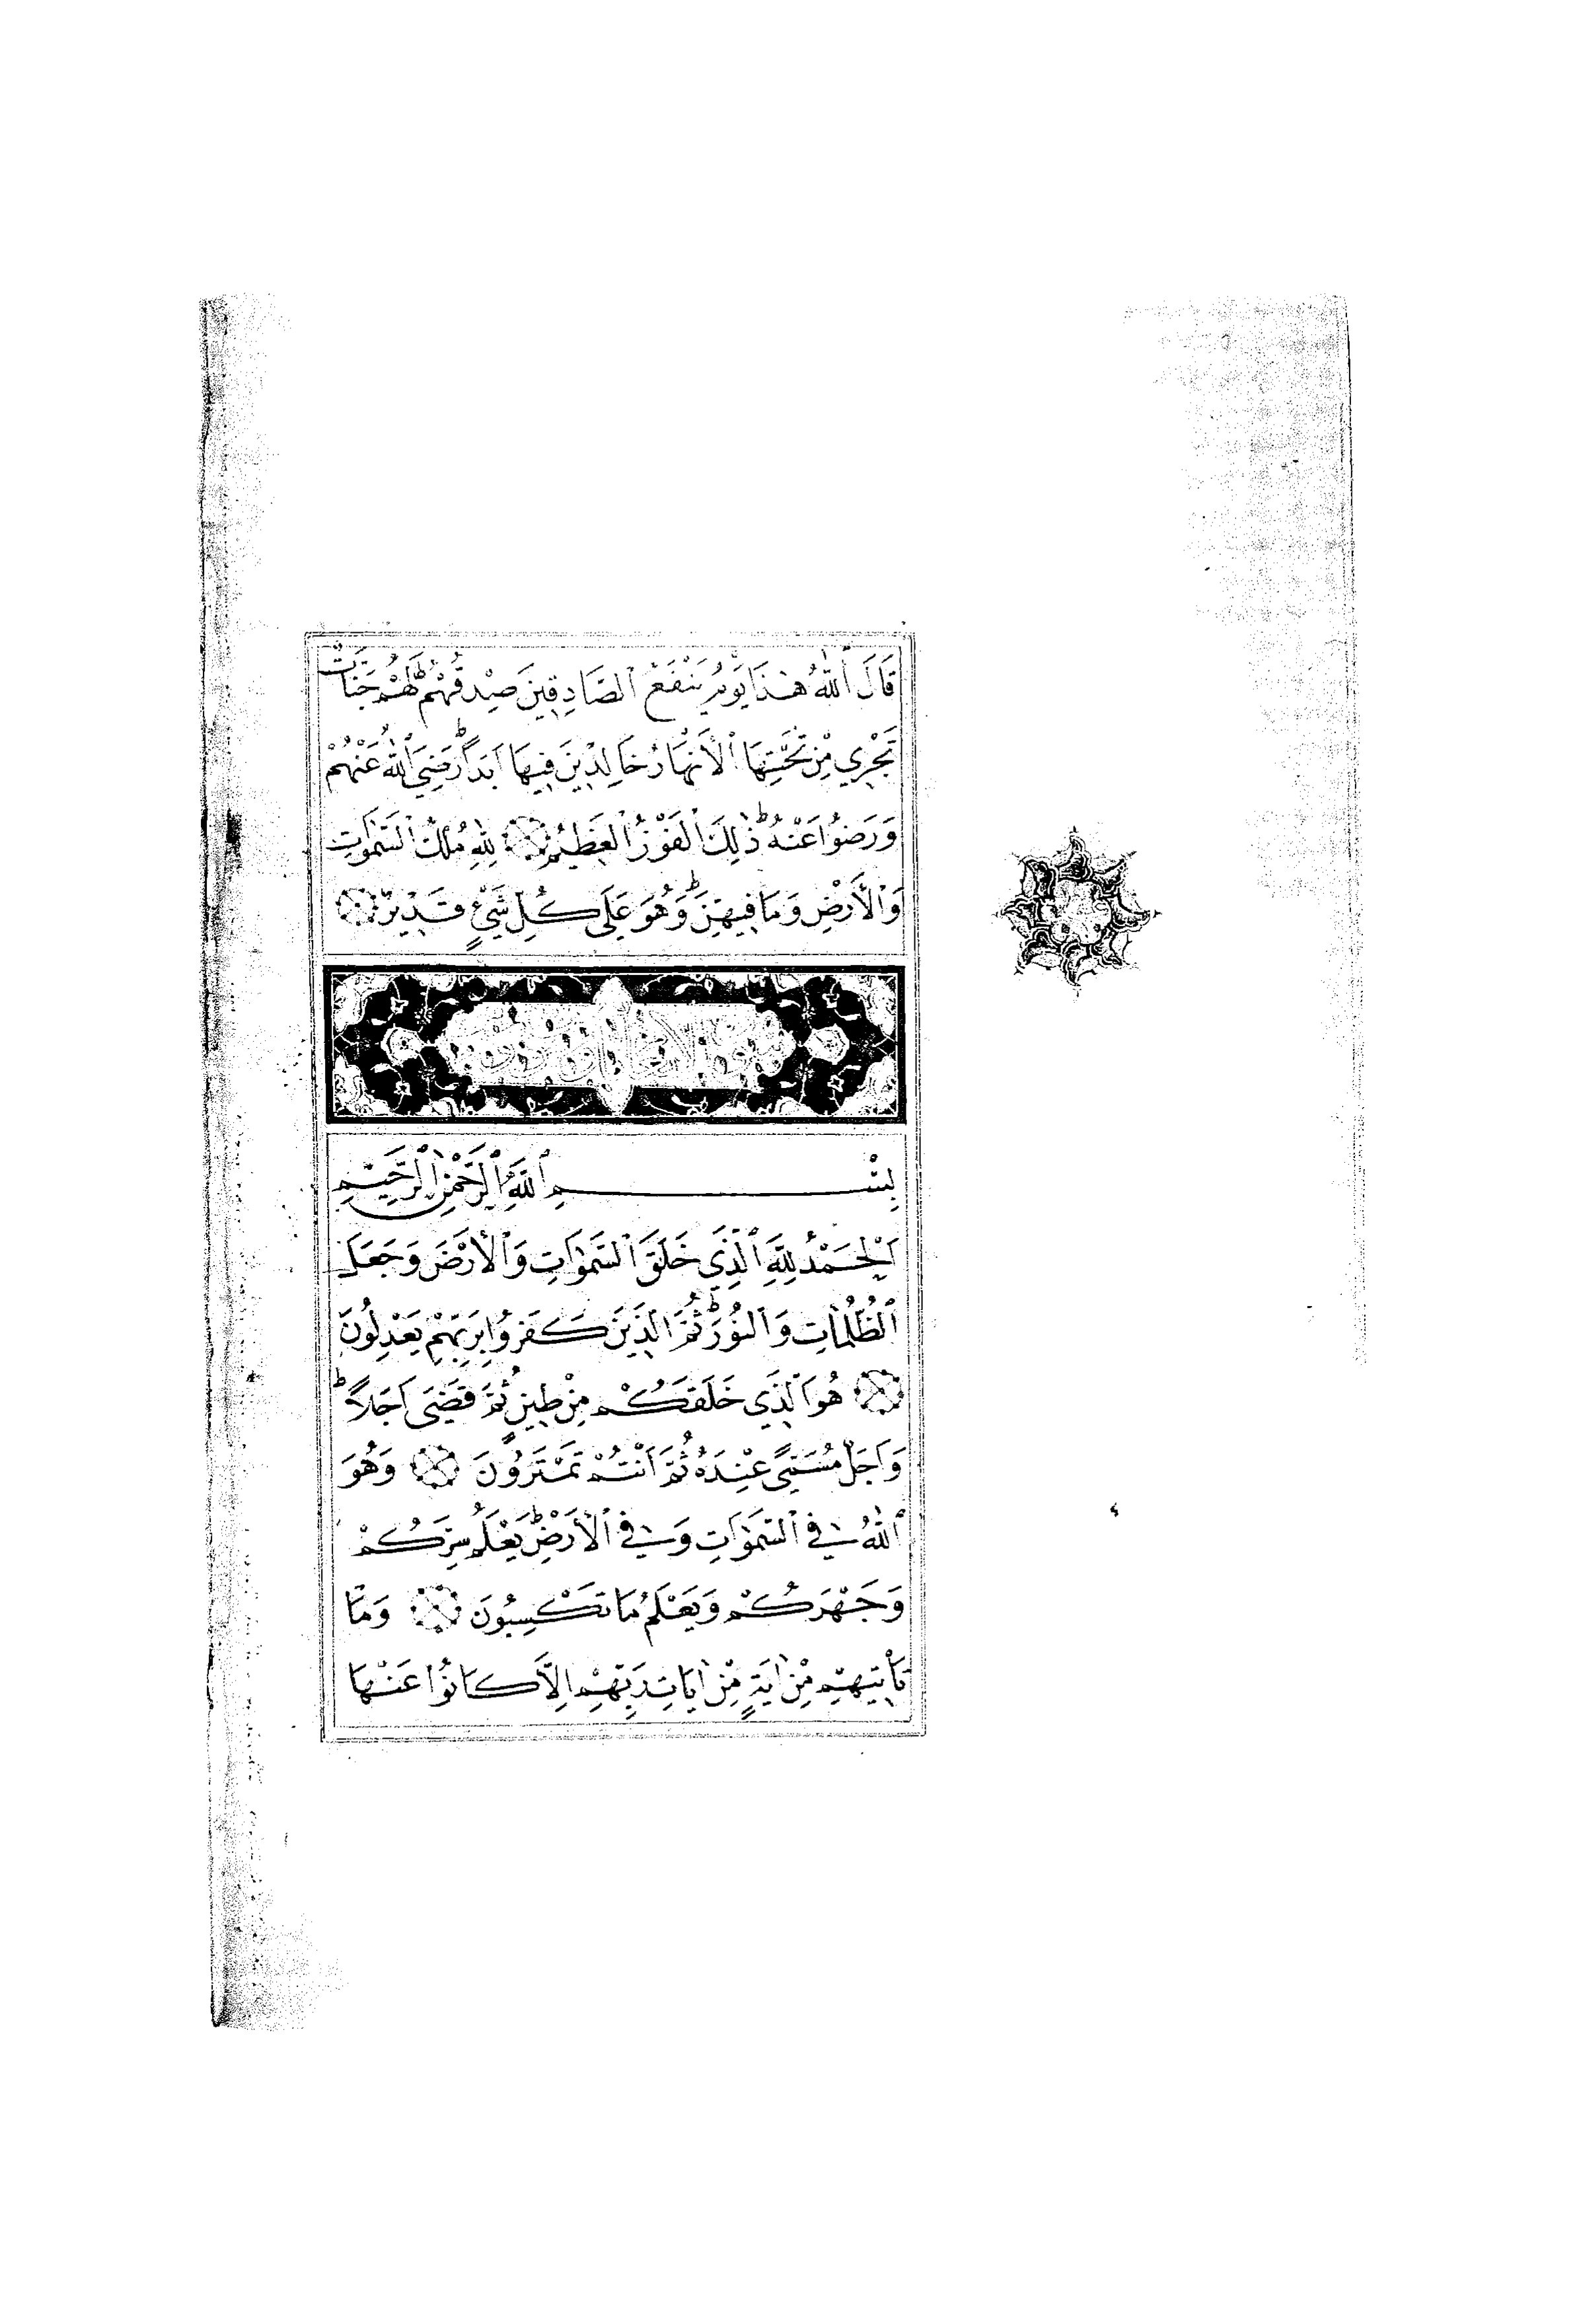 قَالَ ٱللّٰهُ هٰذَا يَوْمُ يَنْفَعُ ٱلصَّادِقِينَ صِدْقُهُمْ ۚ لَهُمْ جَنَّاتٌ
تَجْرِي مِنْ تَحْتِهَا ٱلْأَنْهَارُ خَالِدِينَ فِيهَا اَبَدًا ۗ رَضِيَ ٱللّٰهُ عَنْهُمْ
وَرَضُوا عَنْهُ ۗ ذٰلِكَ ٱلْفَوْزُ ٱلْعَظِيمُ لِلّٰهِ مُلْكُ ٱلسَّمٰوَاتِ
وَٱلْأَرْضِ وَمَا فِيهِنَّ ۗ وَهُوَ عَلَى كُلِّ شَيْءٍ قَدِيرٌ
سورة الانعام
بِسْمِ ٱللّٰهِ ٱلرَّحْمٰنِ ٱلرَّحِيمِ
اَلْحَمْدُ لِلّٰهِ ٱلَّذِي خَلَقَ ٱلسَّمٰوَاتِ وَٱلْأَرْضَ وَجَعَلَ
ٱلظُّلُمَاتِ وَٱلنُّورَ ۗ ثُمَّ ٱلَّذِينَ كَفَرُوا بِرَبِّهِمْ يَعْدِلُونَ
هُوَ ٱلَّذِي خَلَقَكُمْ مِنْ طِينٍ ثُمَّ قَضَى اَجَلًا ۗ
وَاَجَلٌ مُسَمًّى عِنْدَهُ ثُمَّ اَنْتُمْ تَمْتَرُونَ وَهُوَ
ٱللّٰهُ فِي ٱلسَّمٰوَاتِ وَفِي ٱلْأَرْضِ ۗ يَعْلَمُ سِرَّكُمْ
وَجَهْرَكُمْ وَيَعْلَمُ مَا تَكْسِبُونَ وَمَا
تَأْتِيهِمْ مِنْ اٰيَةٍ مِنْ اٰيَاتِ رَبِّهِمْ اِلَّا كَانُوا عَنْهَا